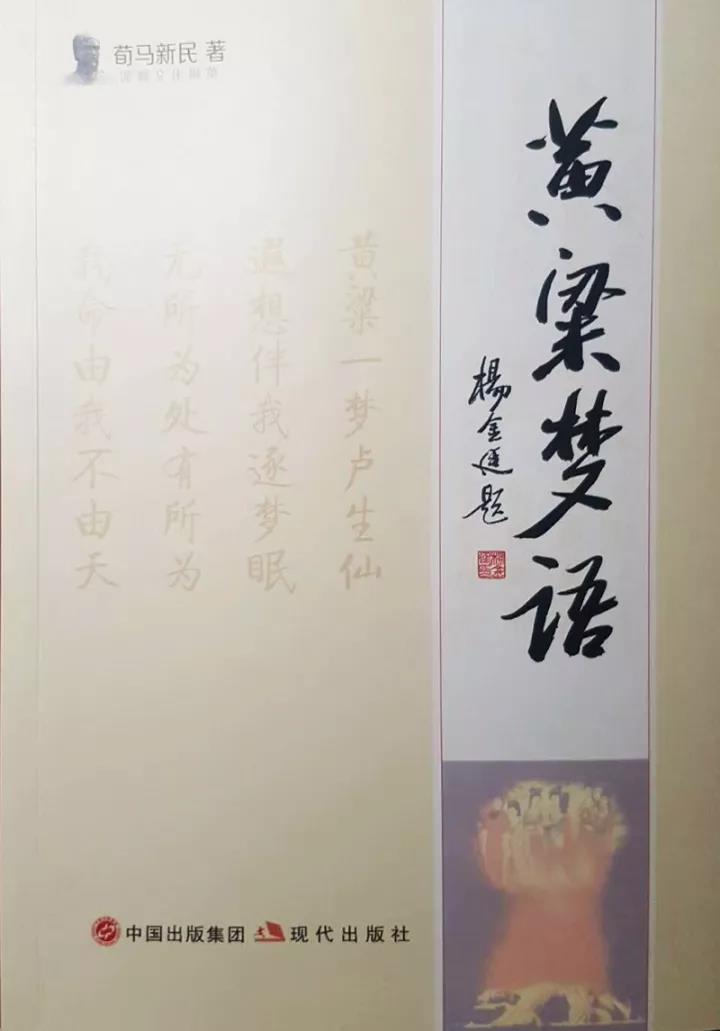 荀马新民 著
黄粱梦语
杨金廷题
黄粱一梦卢生仙
遐想伴我逐梦眠
无所为处有所为
我命由我不由天
中国出版集团 现代出版社